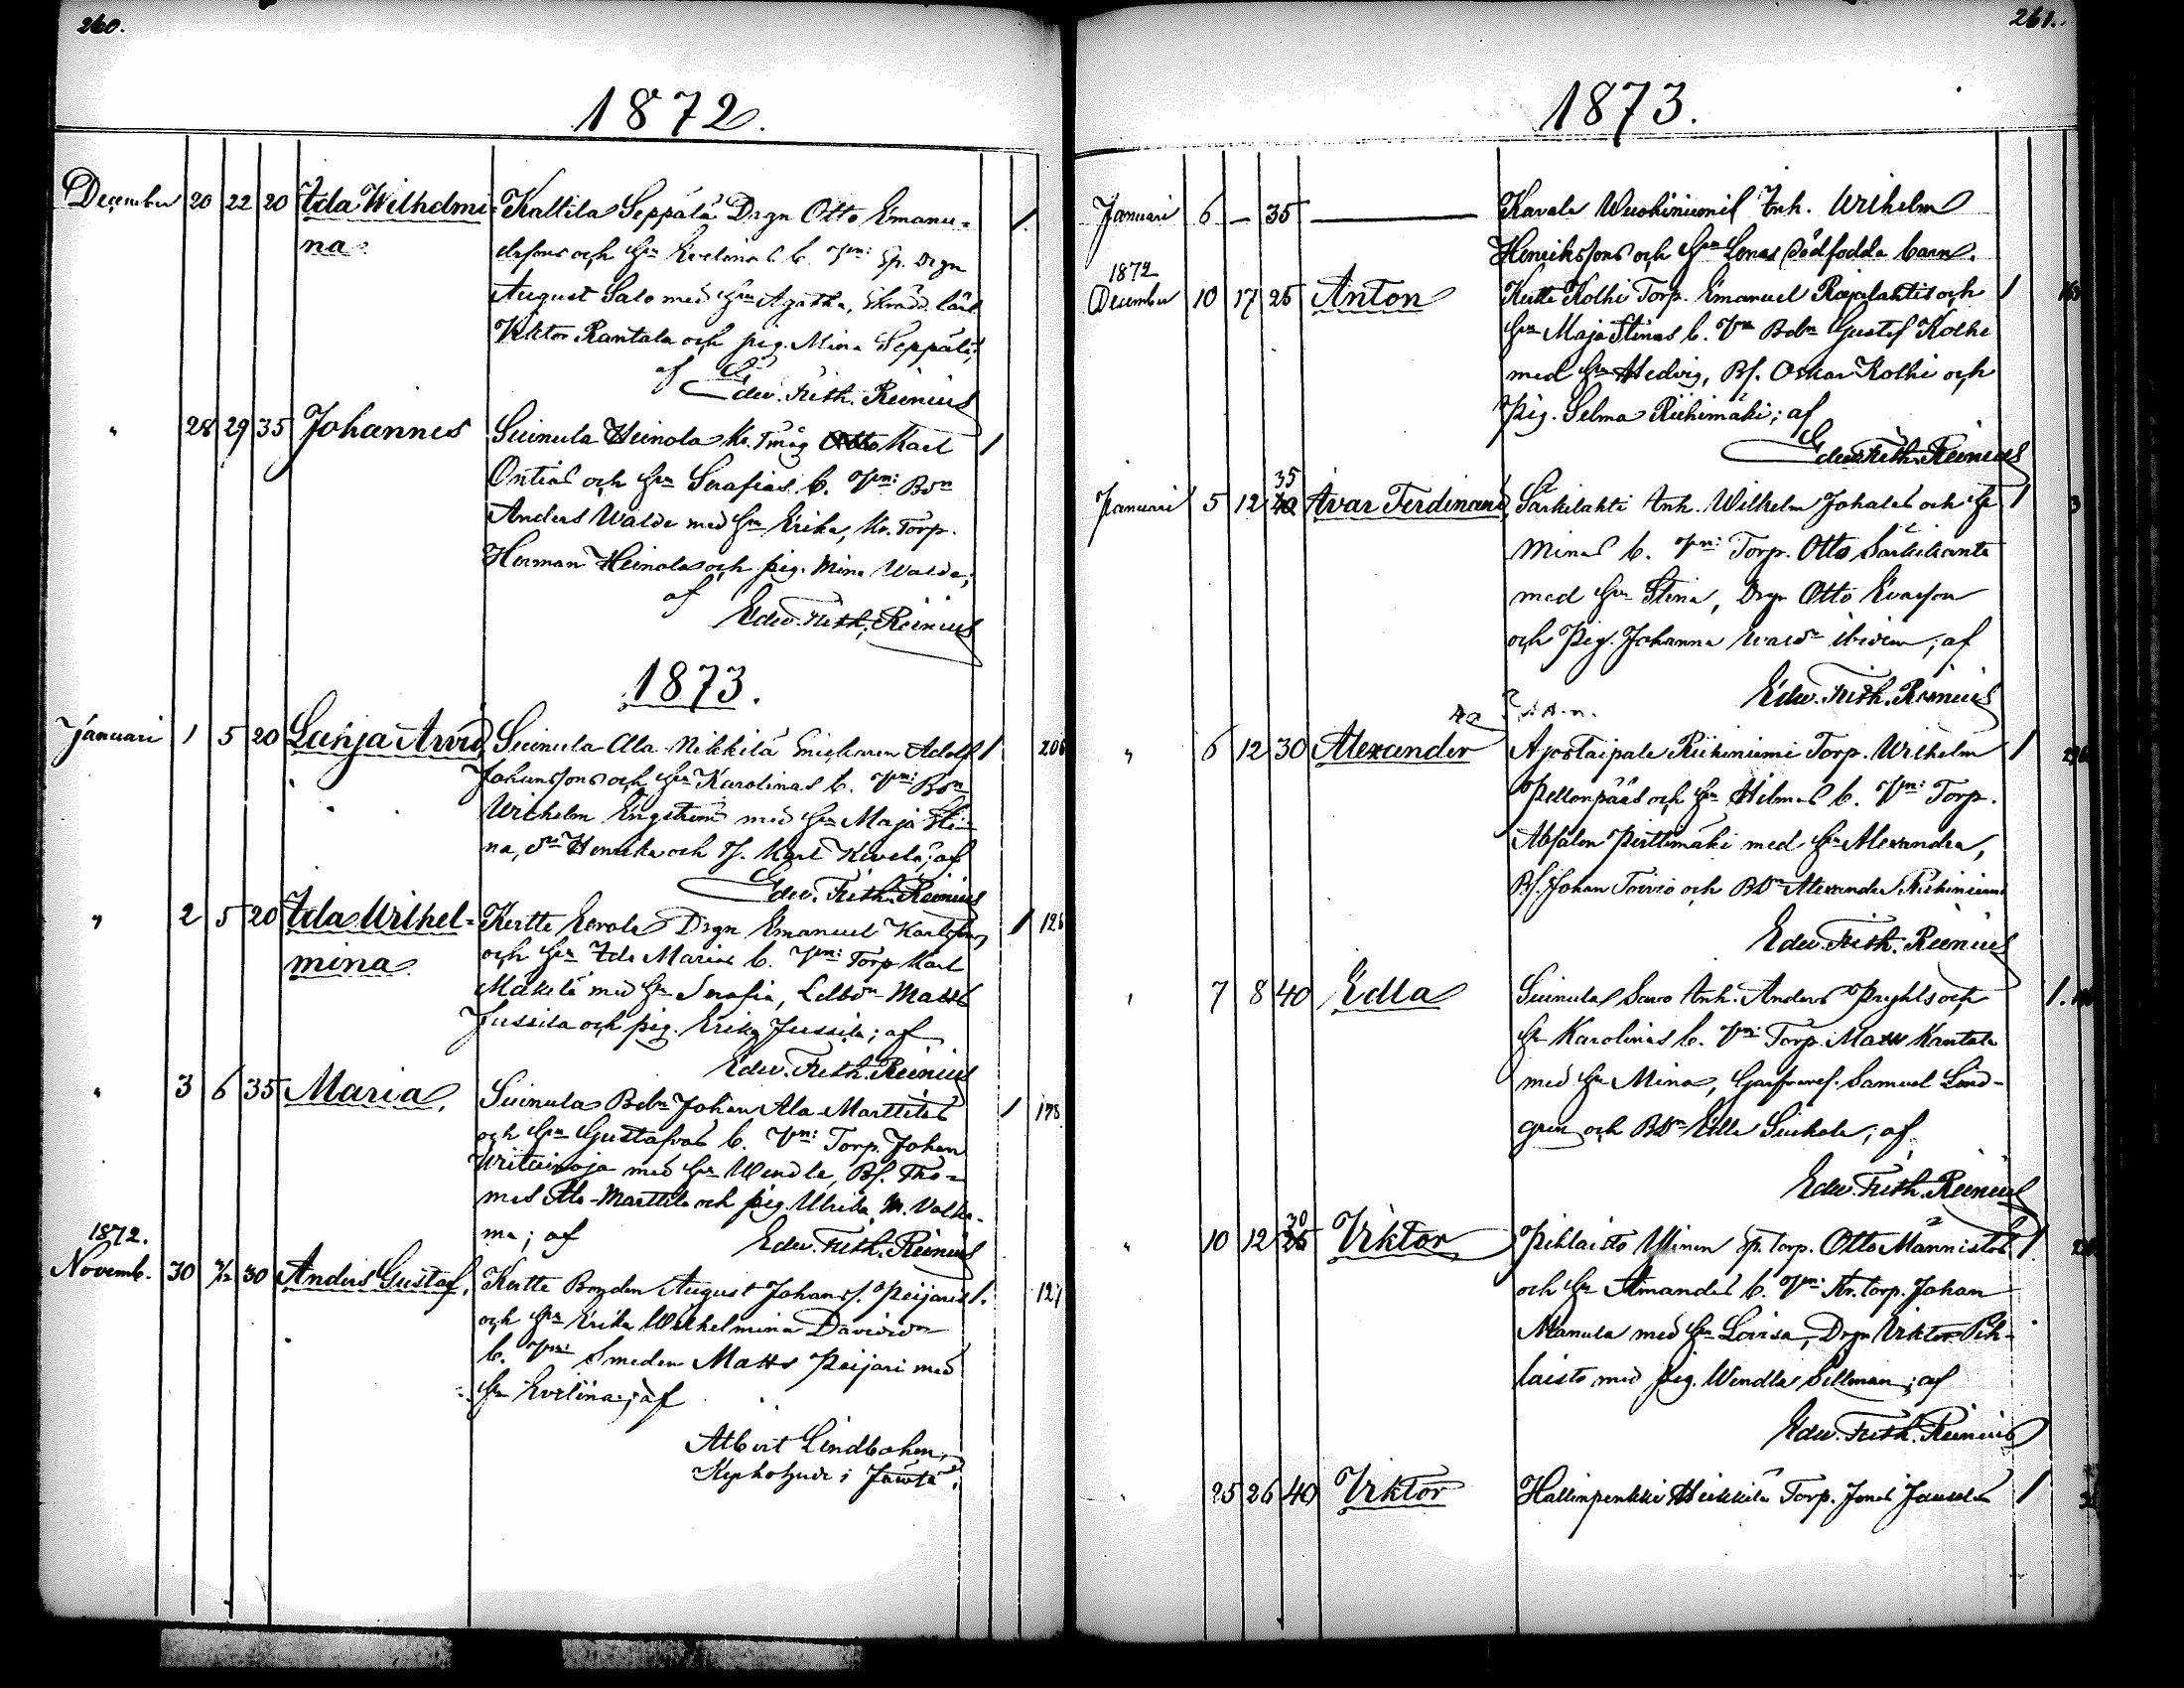 260.
1872.
December 20 22 20 Ida Wilhelmi- Kaltila Seppälä Drgn Otto Emanu-
na. elsons och Hu Evelinas b. Vn: Sp. Drgn
August Salo med Hu Agatha,
Viktor Rantala och pig. Mina Seppälä;
af
Edw. Frith. Reinius
" 28 29 35 Johannes Suinula Heinola Kr. Tmåg Karl 1
Ontias och Hu Serafias b. Vn: Bdn
Anders Walde med Hu Erika, Kr. Torp.
Herman Heinola och pig. Mina Walde;
af
Edw. Frith. Reinius
1873.
Januari 1 5 20 Arvid Suinula Ala-Nikkilä Adolf 1 206
Johanssons och Hu Karolinas b. Vn: Bdn
Wilhelm Engström med Hu Maja Sti-
na, Henrika och Karl Kivelä; af
Edw. Frith. Reinius
" 2 5 20 Ida Wilhel- Kertte Eerola Drgn Emanuel Karlsson 1 126
mina och Hu Ida Marias b. Vn: Torp Karl
Mäkelä med Hu Serafia, Matts
Jussila och pig. Erika Jussila; af
Edw. Frith. Reinius
" 3 6 35 Maria, Suinula Bdn Johan Ala-Marttilas 1 198
och Hu Gustafvas b. Vn: Torp. Johan
med Hu Wendla, Bs. Tho-
mas Ala-Marttila och pig. Ulrika M. Valka-
ma; af Edw. Frith. Reinius
1872.
Novemb. 30 30 Anders Gustaf, Kertte Bonden August Johanss. Peijaris 1. 127
och Hu Erika Wilhelmina Davidsdr
b. Vn: Smeden Matts Peijari med
Hu Evelina; af
Albert Lindbohm,
i
261.
1873.
Januari 6 – 35 Kavala Inh. Wilhelm
Henrikssons och Hu Lenas dödfödda barn.
1872
December 10 17 25 Anton Kutte Kolhi Torp. Emanuel Rajalahtis och 1
Hu Maja Stinas b. Vn Bdn Gustaf Kolhi
med Hu Hedvig, Bs. Oskar Kolhi och
Pig. Selma Riihimäki; af
Edw. Frith. Reinius
35
Januari 5 12 40 Ivar Ferdinand, Särkilahti Inh. Wilhelm Johalas och Hu 1 3
Minas b. Vn: Torp. Otto
med Hu Stina, Drgn Otto Evasson
och Pig. Johanna ibidem; af
Edw. Frith. Reinius
" 6 12 30 Alexander Ajostaipale Riihiniemi Torp. Wilhelm 1
Pellonpääs och Hu Hilmas b. Vn: Torp.
Absalon Perttimäki med Hu Alexandra,
Bs. Johan Toivio och Bdr Alexandra Riihiniemi
Edw. Frith. Reinius
" 7 8 40 Edla Suinula Savo Inh. Anders Pryhls och 1.
Hu Karolinas b. Vn: Torp. Matts Rantala
med Hu Mina, Samuel Lind-
gren och Bdr Edla Siukola; af
Edw. Frith. Reinius
30
" 10 12 25 Viktor Pihlaisto Ulinen Sp. Torp. Otto Männistös 1
och Hu Amandas b. Vn: Kr. torp. Johan
Mannula med Hu Lovisa, Drgn Viktor Pih-
laisto med pig. Wendla Sellman; af
Edw. Frith. Reinius
" 25 26 40 Viktor Hallinpenkki Heikkilä Torp. Jonas 1